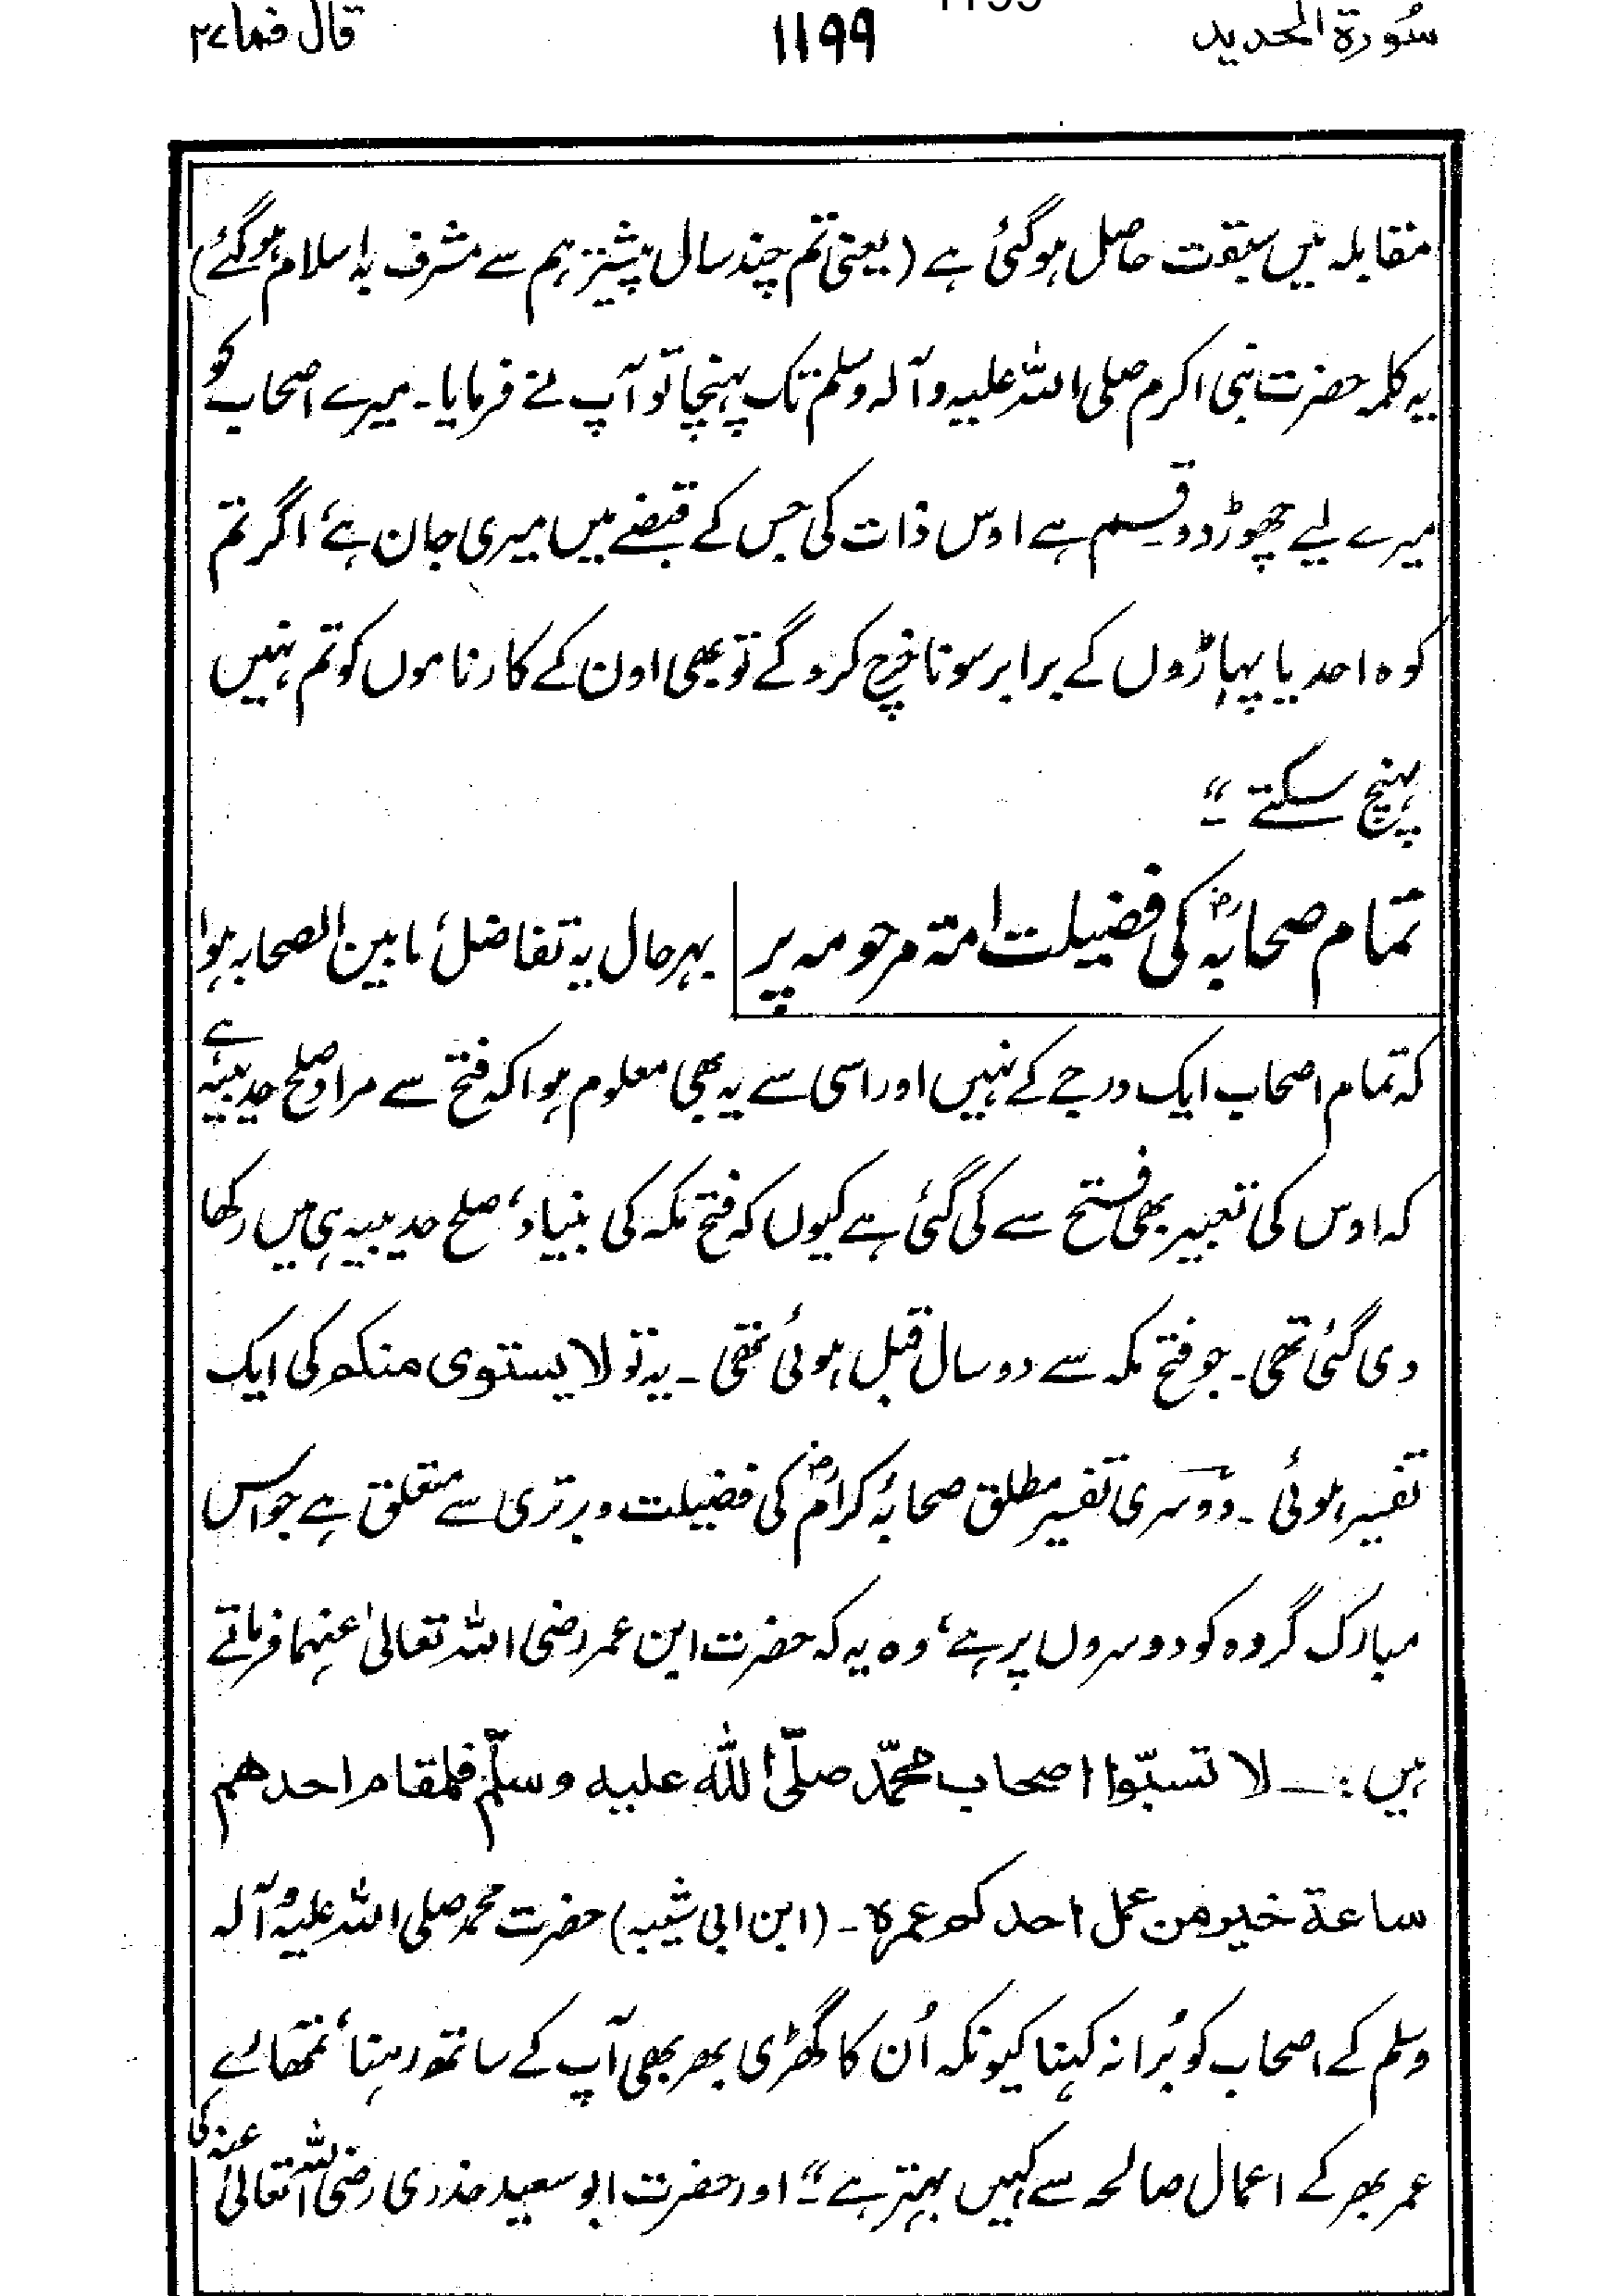 سُورة الحديد ۱۱۹۹ قال فما ۲۷
مقابلہ میں سبقت حاصل ہوگئی ہے (یعنی تم چند سال پیشتر ہم سے مشرف بہ اسلام ہوگئے)
یہ کلمہ حضرت نبی اکرم صلی اللہ علیہ وآلہ وسلم تک پہنچا تو آپ نے فرمایا۔ میرے اصحاب کو
میرے لیے چھوڑ دو قسم ہے اوس ذات کی جس کے قبضے میں میری جان ہے، اگر تم
کوہ احد یا پہاڑوں کے برابر سونا خرچ کرو گے تو بھی اون کے کارناموں کو تم نہیں
پہنچ سکتے۔"
تمام صحابہؓ کی فضیلت امۃ مرحومہ پر بہر حال یہ تفاضل، مابین الصحابہ ہوا
کہ تمام اصحاب ایک درجے کے نہیں اور اسی سے یہ بھی معلوم ہوا کہ فتح سے مراد صلح حدیبیہ ہے
کہ اوس کی تعبیر بھی فتح سے کی گئی ہے کیوں کہ فتح مکہ کی بنیاد، صلح حدیبیہ ہی میں رکھا
دی گئی تھی۔ جو فتح مکہ سے دو سال قبل ہوئی تھی۔ یہ تو لا یستوی منکم کی ایک
تفسیر ہوئی۔ دوسری تفسیر مطلق صحابۂ کرامؓ کی فضیلت و برتری سے متعلق ہے جو اس
مبارک گروہ کو دوسروں پر ہے، وہ یہ کہ حضرت ابن عمر رضی اللہ تعالیٰ عنہما فرماتے
ہیں :۔ لا تسبّوا اصحاب محمّد صلّی اللّٰہ علیہ وسلّم فلمقام احدھم
ساعة خیر من عمل احدکم عمرہ۔ (ابن ابی شیبہ) حضرت محمد صلی اللہ علیہ وآلہ
وسلم کے اصحاب کو بُرا نہ کہنا کیونکہ اُن کا گھڑی بھر بھی آپ کے ساتھ رہنا، تمھارے
عمر بھر کے اعمال صالحہ سے کہیں بہتر ہے۔" اور حضرت ابو سعید خدری رضی اللہ تعالیٰ عنہ کی